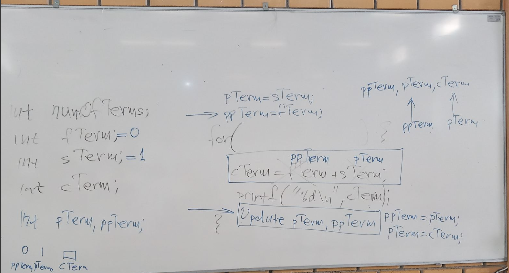 int numOfTerms;
int fTerm;=0
int sTerm;=1
int cTerm;
int pTerm, ppTerm;
0 1
ppTerm pTerm cTerm
pTerm=sTerm;
ppTerm=fTerm;
for(
ppTerm pTerm
cTerm=fTerm+sTerm;
printf("%d\n", cTerm);
update pTerm, ppTerm
}
ppTerm, pTerm, cTerm
ppTerm pTerm
ppTerm=pTerm;
pTerm=cTerm;